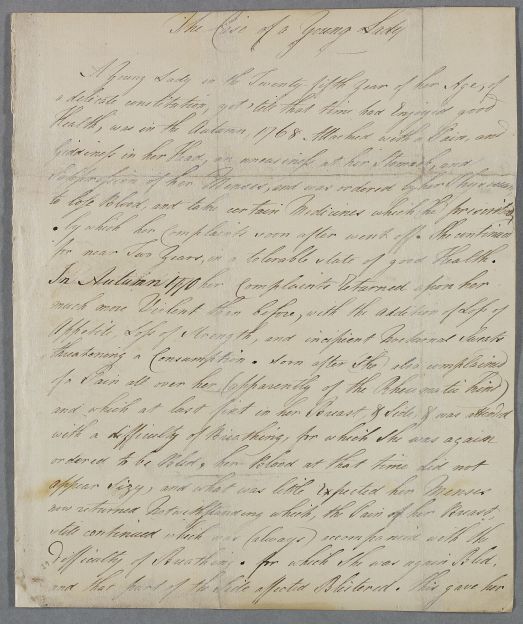 The Case of a Young Lady
A Young Lady in the Twenty fifth Year of her Age, of
a delicate constitution, yet till that time had Enjoyed good
Health, was in the Autumn 1768 Attacked with a Pain, and
Giddiness in her Head, an uneasiness at her Stomach, and
Suppression of her Menses, and was ordered by her Physician
to lose Blood, and take certain Medicines which he prescribed
by which her complaints soon after went off. She continued
for near Two Years, in a tolerable state of good Health.
In Autumn 1770 her Complaints returned upon her
much more Violent than before, with the addition of Loss of
Appetite, Loss of Strength, and incipient Nocturnal Sweats
threatening a Consumption. soon after She also complained
of a Pain all over her (apparently of the Rheumatic kind)
and which at last fixt in her Breast, & Side, & was attended
with a difficulty of Breathing, for which She was again
ordered to be Bled, her Blood at that time did not
appear Sizy, and what was little Expected her Menses
now returned Notwithstanding which, the Pain of her Breast
still continued which was (always) accompanied with the
Difficulty of Breathing. for which She was again Bled,
and that part of the Side affected Blistered. this gave her